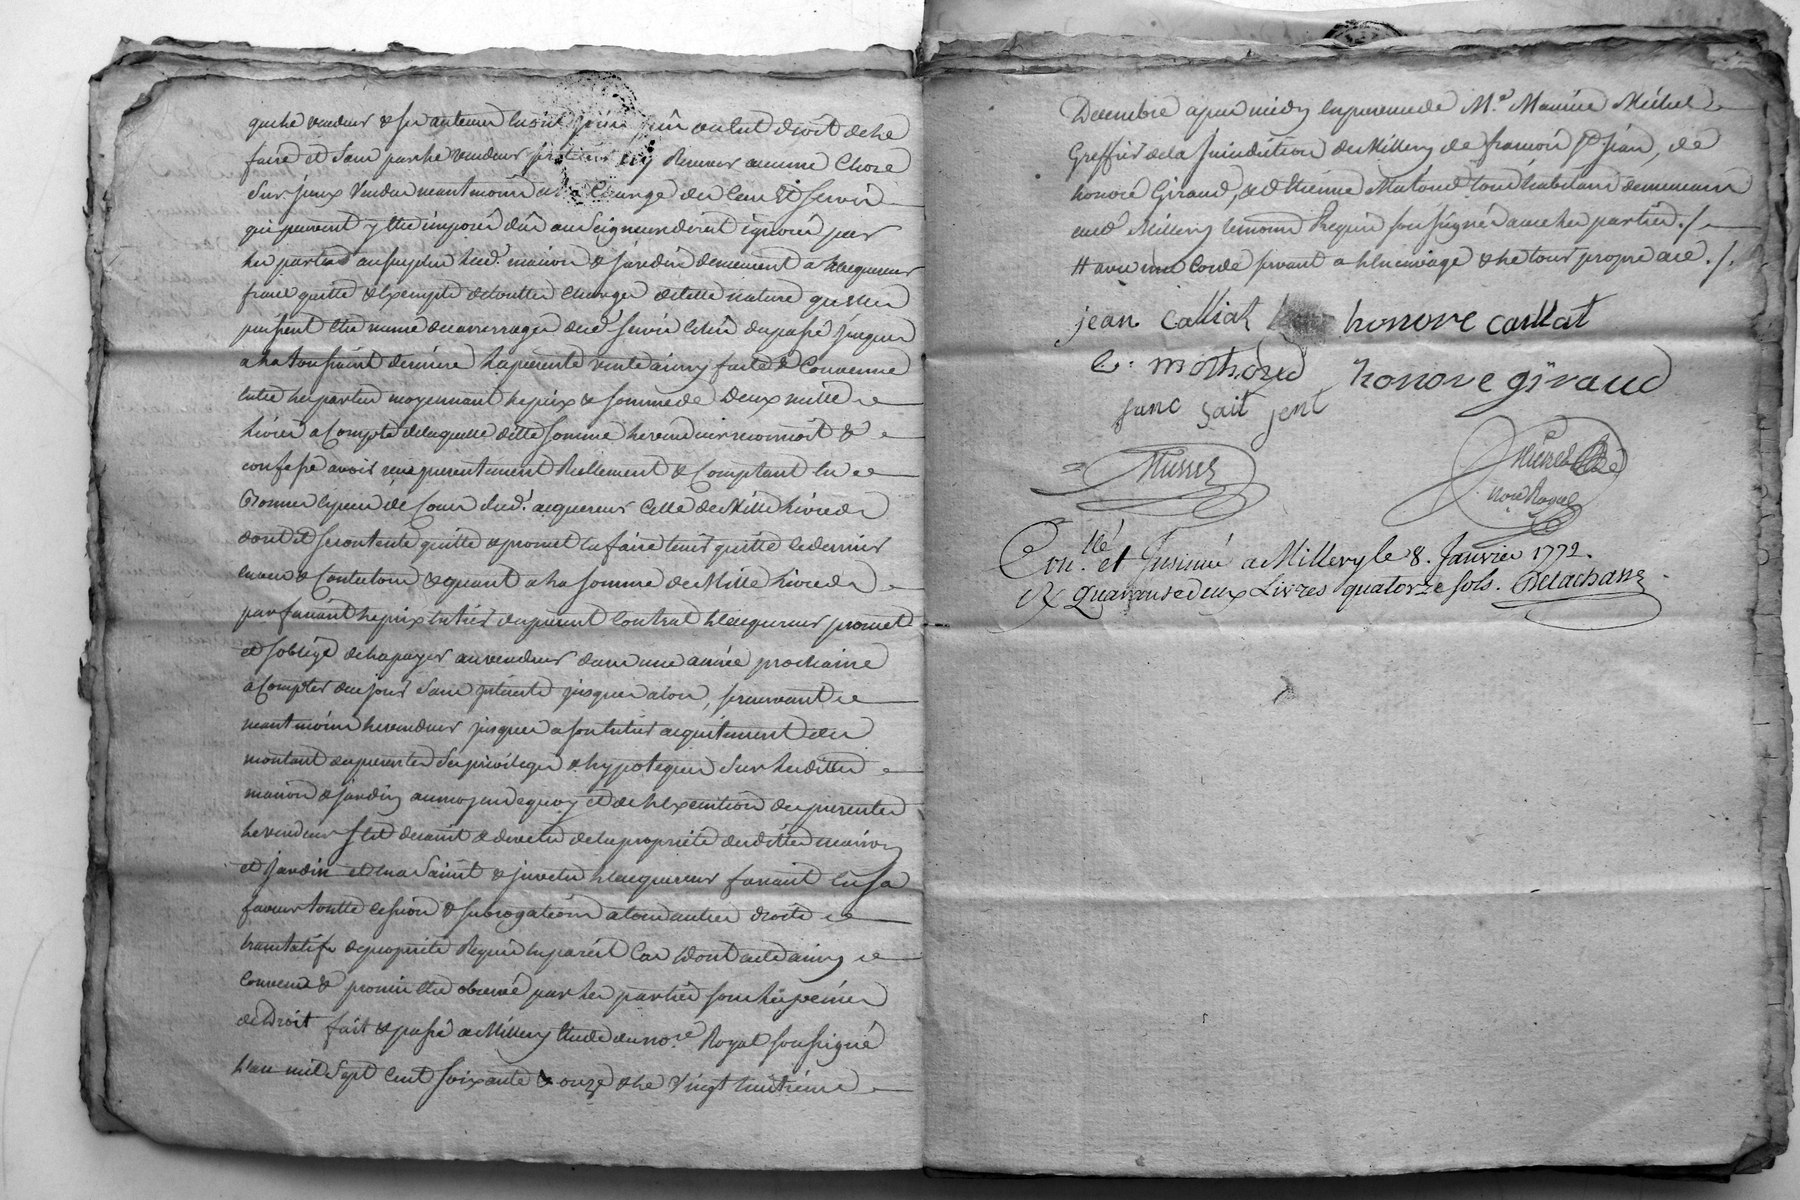 que le vendeur & ses auteurs en ont jouis ou eu droit de le
faire et sans par le vendeur y Retenir aucune Chose
Sur iceux Vendu neantmoins a la Charge du Cens & servis
qui peuvent y etre imposés dûs aux Seigneurs directs ignorés par
les parties au surplus lesd. maison & jardin demeurent a l'acquereur
franc quitte & exempts de toutte Charges de telle nature quelles
puissent etre meme des arrerages desd. servis echûs du passé jusques
a la toussaint derniere la presente vente ainsy faitte & Convenue
entre les parties moyennant le prix & somme de Deux mille
Livres a Compte de laquelle ditte somme le vendeur reconnoit &
confesse avoir reçu presentement Reellement & Comptant en
bonnes especes de Cours dud. acquereur Celle de Mille Livres
dont il se contente quitte & promet en faire tenir quitte ledernier
envers & Contre tous & quant a la somme de Mille Livres
parfaisant le prix entier du present Contrat l'acquereur promet
et s'oblige de la payer au vendeur dans une année prochaine
a Compter de ce jour Sans interets jusques alors, se reservant
neantmoins le vendeur jusques a son entier acquittement du
montant des presentes Ses privileges & hypoteques Sur lesdittes
maison & jardin au moyen de quoy et de l'Execution des presentes
le vendeur s'est demis & devetu de la propriété desdittes maison
et jardin et en a Saisit & invetu l'acquereur faisant en sa
faveur toutte cession & subrogation a tous autres droits
translatifs de propriété Requis en pareil Cas Dont acte ainsy
Convenu & promis etre observé par les parties sous les peines
de Droit fait & passé a Millery Etude du nore. Royal soussigné
L'an mil Sept Cent soixante & onze & le Vingt huitieme
Decembre apres midy en presence de Me. Maurice Michel
Greffier de la Jurisdiction de Millery de francois St. Jean, de
honoré Giraud, & d'Etienne Mataud tous habitans demeurants
aud. Millery temoins Requis soussignés avec les parties ./.
# avec une Corde servant a l'encuvage & le tour propre a ce ./.
jean caillat honore caillat
e: mothaud honore giraud
franc sait jent
Michel
nore Royal
Conllé. et Insinué a Millery le 8. Janvier 1772.
R Quarante deux Livres quatorze sols. Delachasse